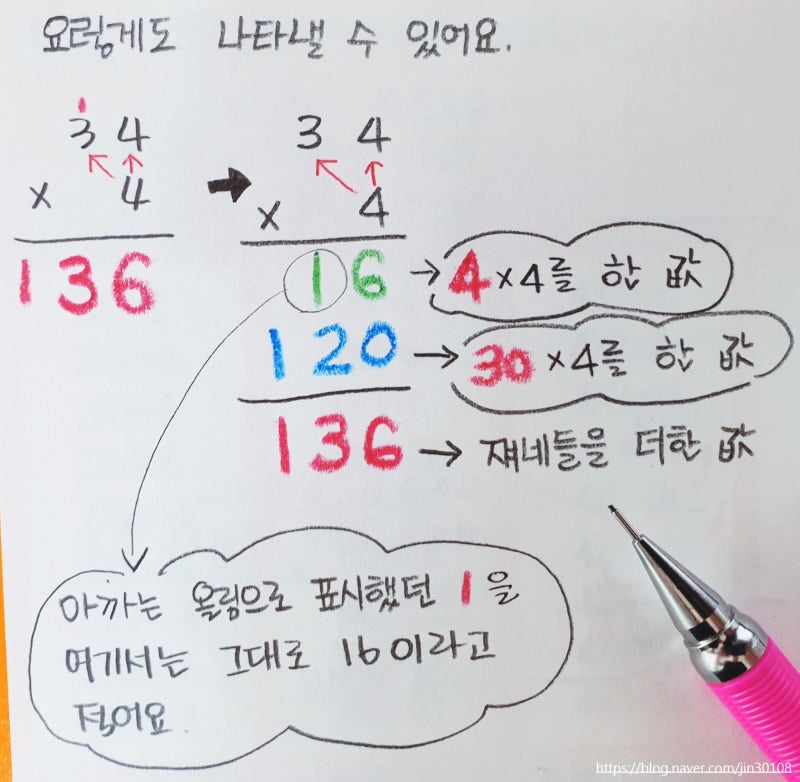 요렇게도 나타낼 수 있어요.
1
3 4
x 4
136
3 4
x 4
16 → 4x4를 한 값
120 → 30x4를 한 값
136 → 쟤네들을 더한 값
아까는 올림으로 표시했던 1을
여기서는 그대로 16이라고
적어요.
https://blog.naver.com/jin30108